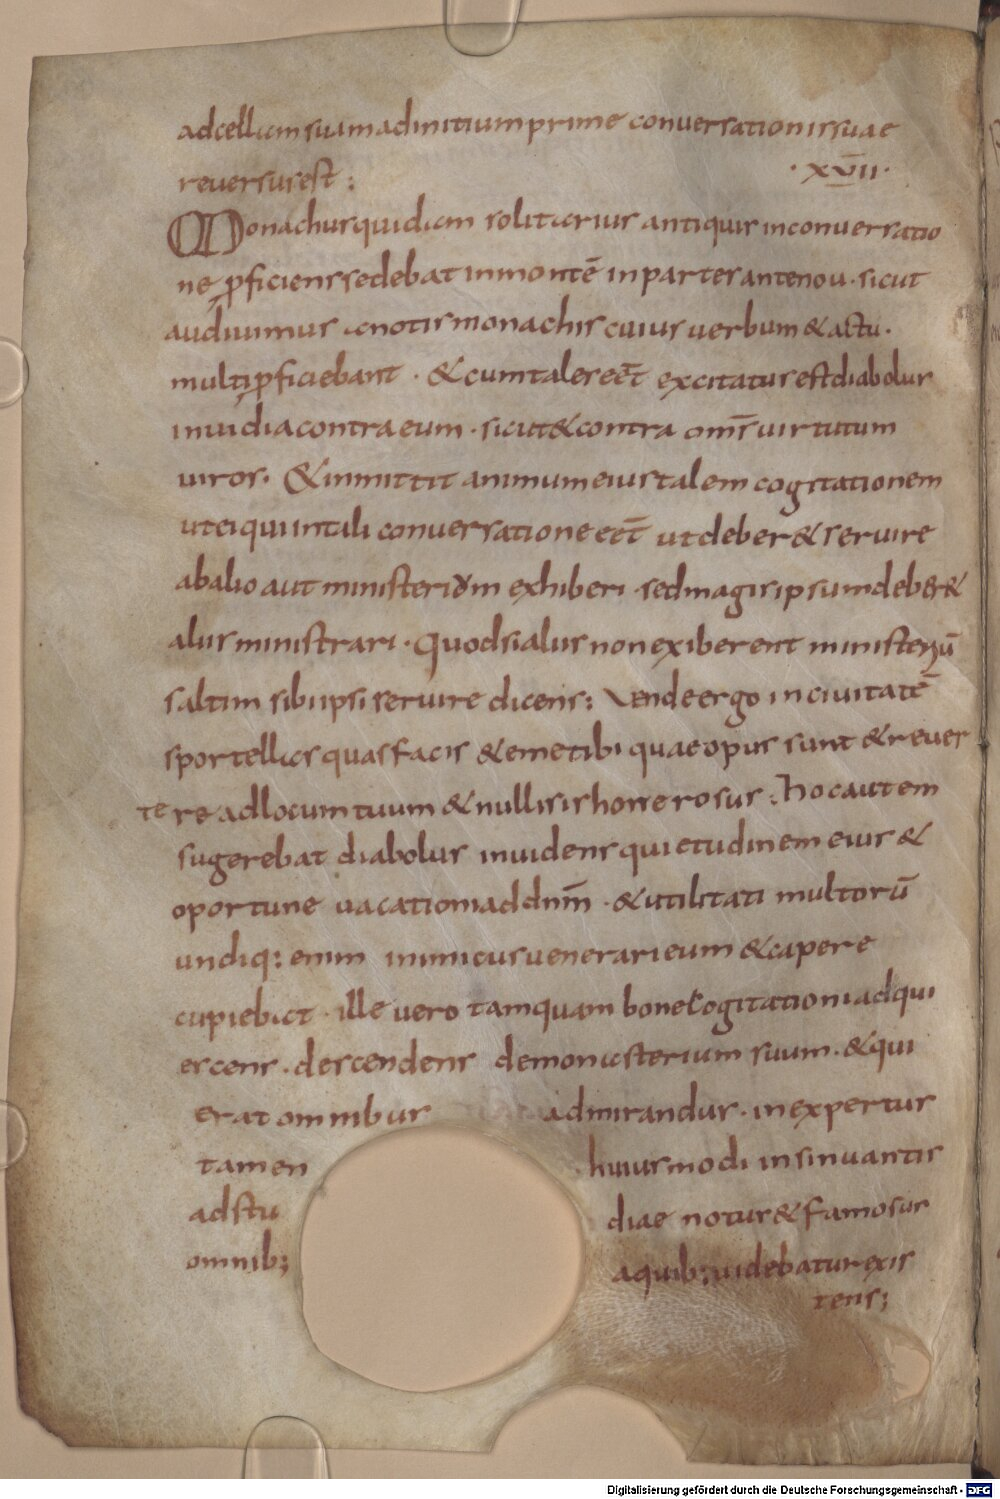 ad cellam suam ad initium prime conuersationis suae
reuersus est :
· XVII ·
Monachus quidam solitarius antiquis in conuersatio
ne proficiens sedebat in montē in partes antenou · sicut
audiuimus a notis monachis cuius uerbum & actu ·
multi proficiebant · & cum tales eēt excitatus est diabolus
inuidia contra eum · sicut & contra om̄s uirtutum
uiros · & inmittit animum eius talem cogitationem
ut ei qui in tali conuersatione eēt ut deber& seruire
ab alio aut ministerium exhiberi · sed magis ipsum deber&
aliis ministrari · Quod si alius non exiberent ministeriū
saltim sibi ipsi seruire dicens : Vende ergo in ciuitatē
sportellas quas facis & eme tibi quae opus sunt & reuer
te re ad locum tuum & nullis sis honerosus : hoc autem
sugerebat diabolus inuidens quietudinem eius &
oportune uacationi ad dn̄m · & utilitati multorū
undiq: enim inimicus uenerari eum & capere
cupiebat · ille uero tamquam bone cogitationi adqui
escens · descendens de monasterium suum · & qui
erat omnibus admirandus · inexpertus
tamen huiusmodi insinuantis
ad stu diae notus & famosus
omnib; a quib: uidebatur exis
tens :
Digitalisierung gefördert durch die Deutsche Forschungsgemeinschaft - DFG